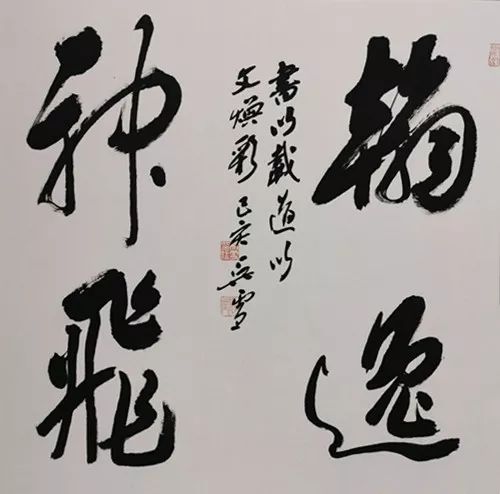 翰逸
書以載道以
文煥彩 己亥
神飛